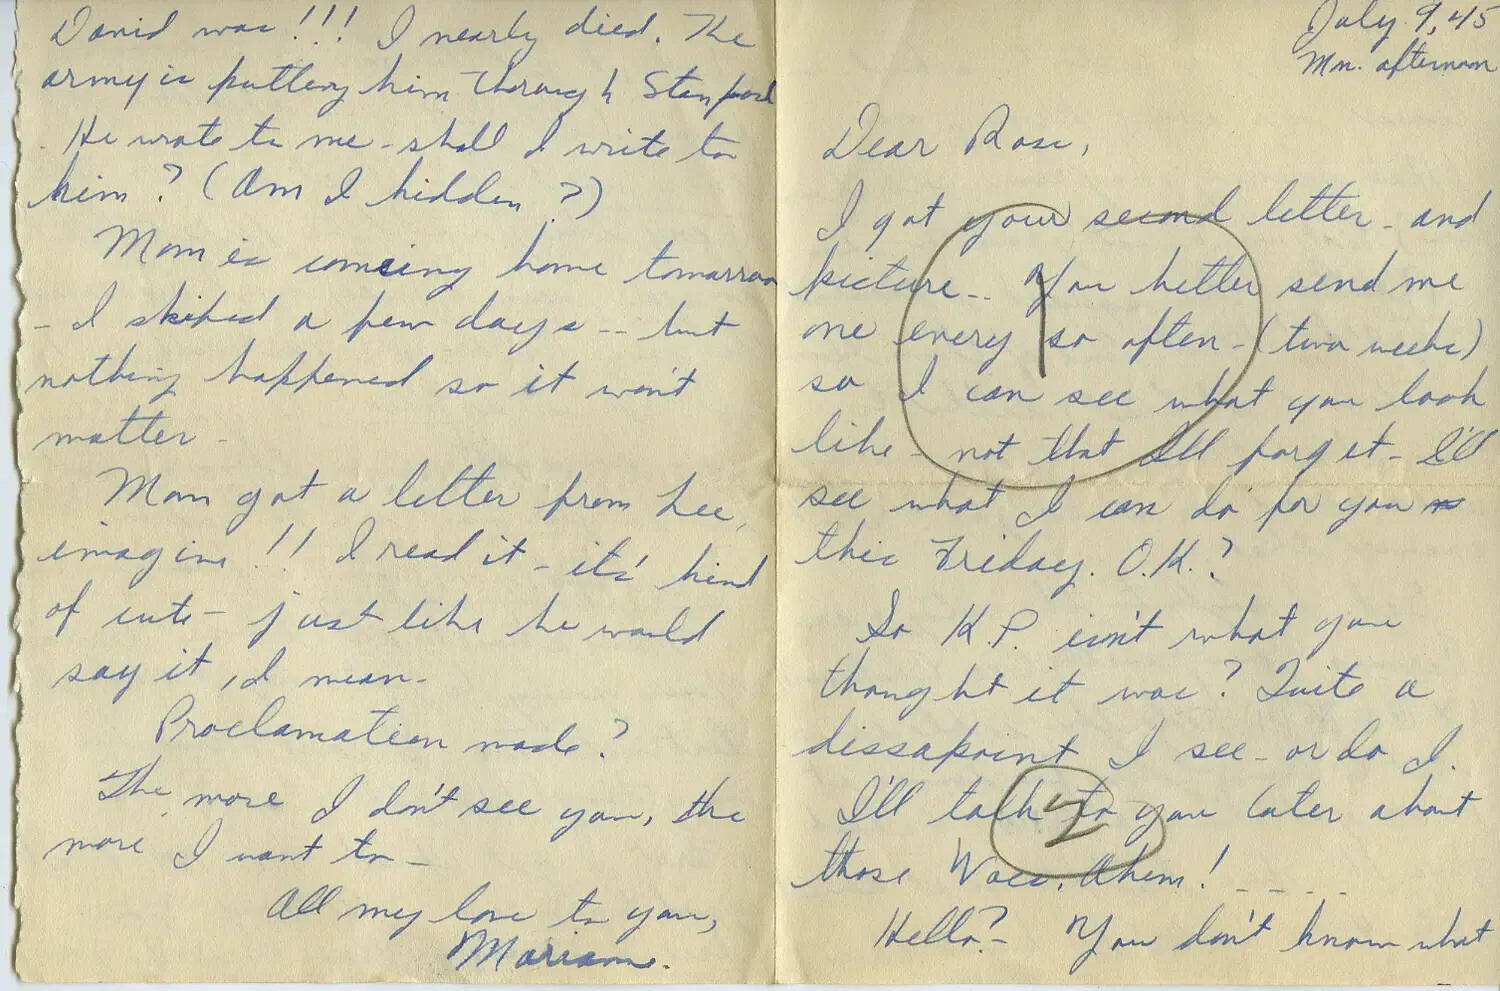 July 9, 45
Mn. afternoon
Dear Rose,
I got your second letter - and
picture -- You better send me
one every so often - (two weeks)
so I can see what you look
like - not that I'll forget - I'll
see what I can do for you
this Friday. O.K.?
So K.P. isn't what you
thought it was? Quite a
dissapoint I see - or do I.
I'll talk to you later about
those Wacs. Ahem! - - - -
Hello? - You don't know what
1
2
David was!!! I nearly died. The
army is putting him through Stanford
- He wrote to me - shall I write to
him? (Am I hidden?)
Mom is comeing home tomarrow
- I skiped a few days -- but
nothing happened so it won't
matter -
Mom got a letter from Lee,
imagine!! I read it - its' kind
of cute - just like he would
say it, I mean -
Proclamation made?
The more I don't see you, the
more I want to -
All my love to you,
Mariam.